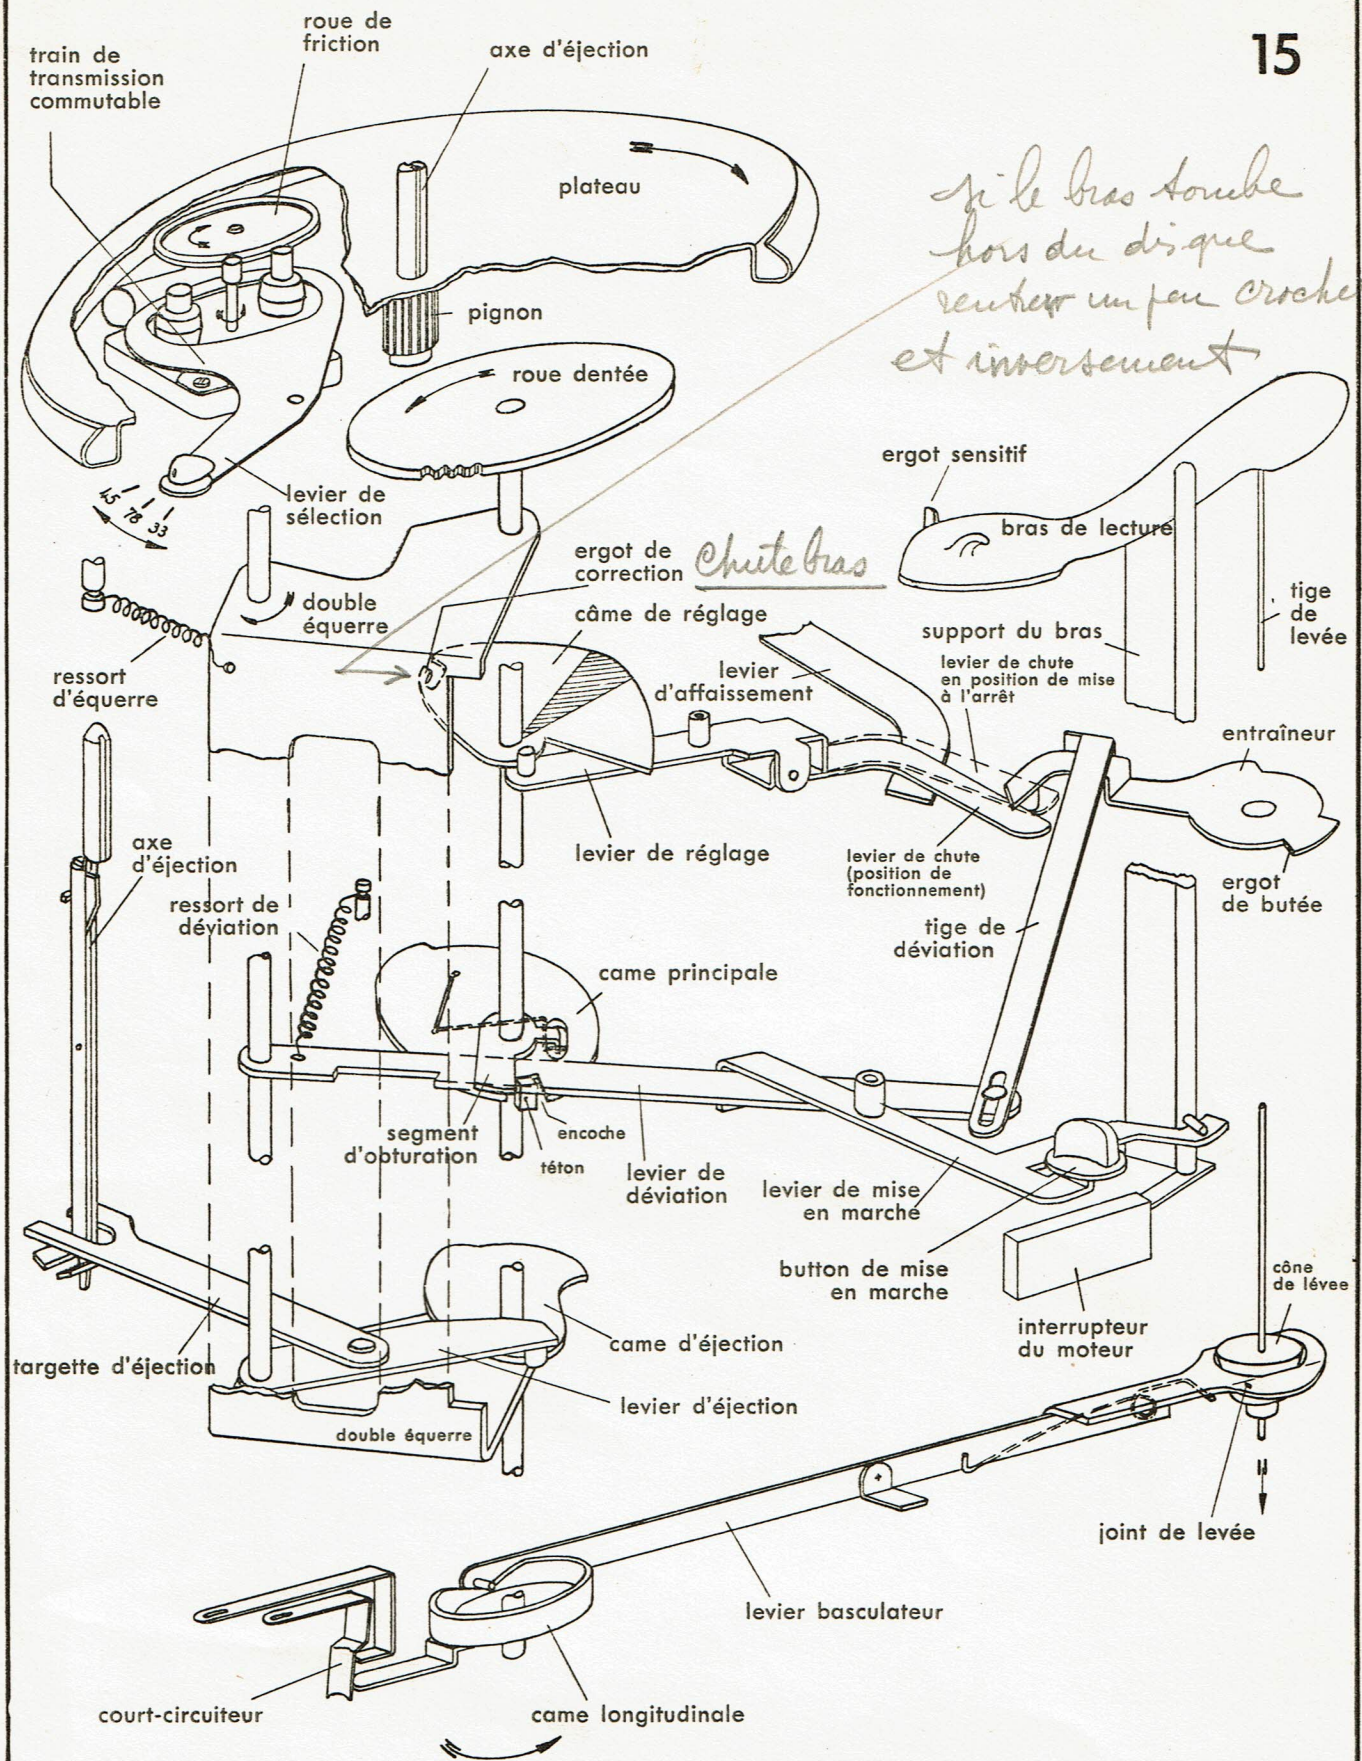 15
roue de
friction
train de
transmission
commutable
axe d'éjection
plateau
si le bras tombe
hors du disque
rentrer un peu croche
et inversement
pignon
roue dentée
ergot sensitif
bras de lecture
45 78 33
levier de
sélection
ergot de
correction
Chute bras
double
équerre
câme de réglage
support du bras
tige
de
levée
ressort
d'équerre
levier
d'affaissement
levier de chute
en position de mise
à l'arrêt
entraîneur
axe
d'éjection
levier de réglage
levier de chute
(position de
fonctionnement)
ergot
de butée
ressort de
déviation
tige de
déviation
came principale
segment
d'obturation
encoche
téton
levier de
déviation
levier de mise
en marche
button de mise
en marche
cône
de lévee
interrupteur
du moteur
came d'éjection
targette d'éjection
levier d'éjection
double équerre
joint de levée
levier basculateur
court-circuiteur
came longitudinale